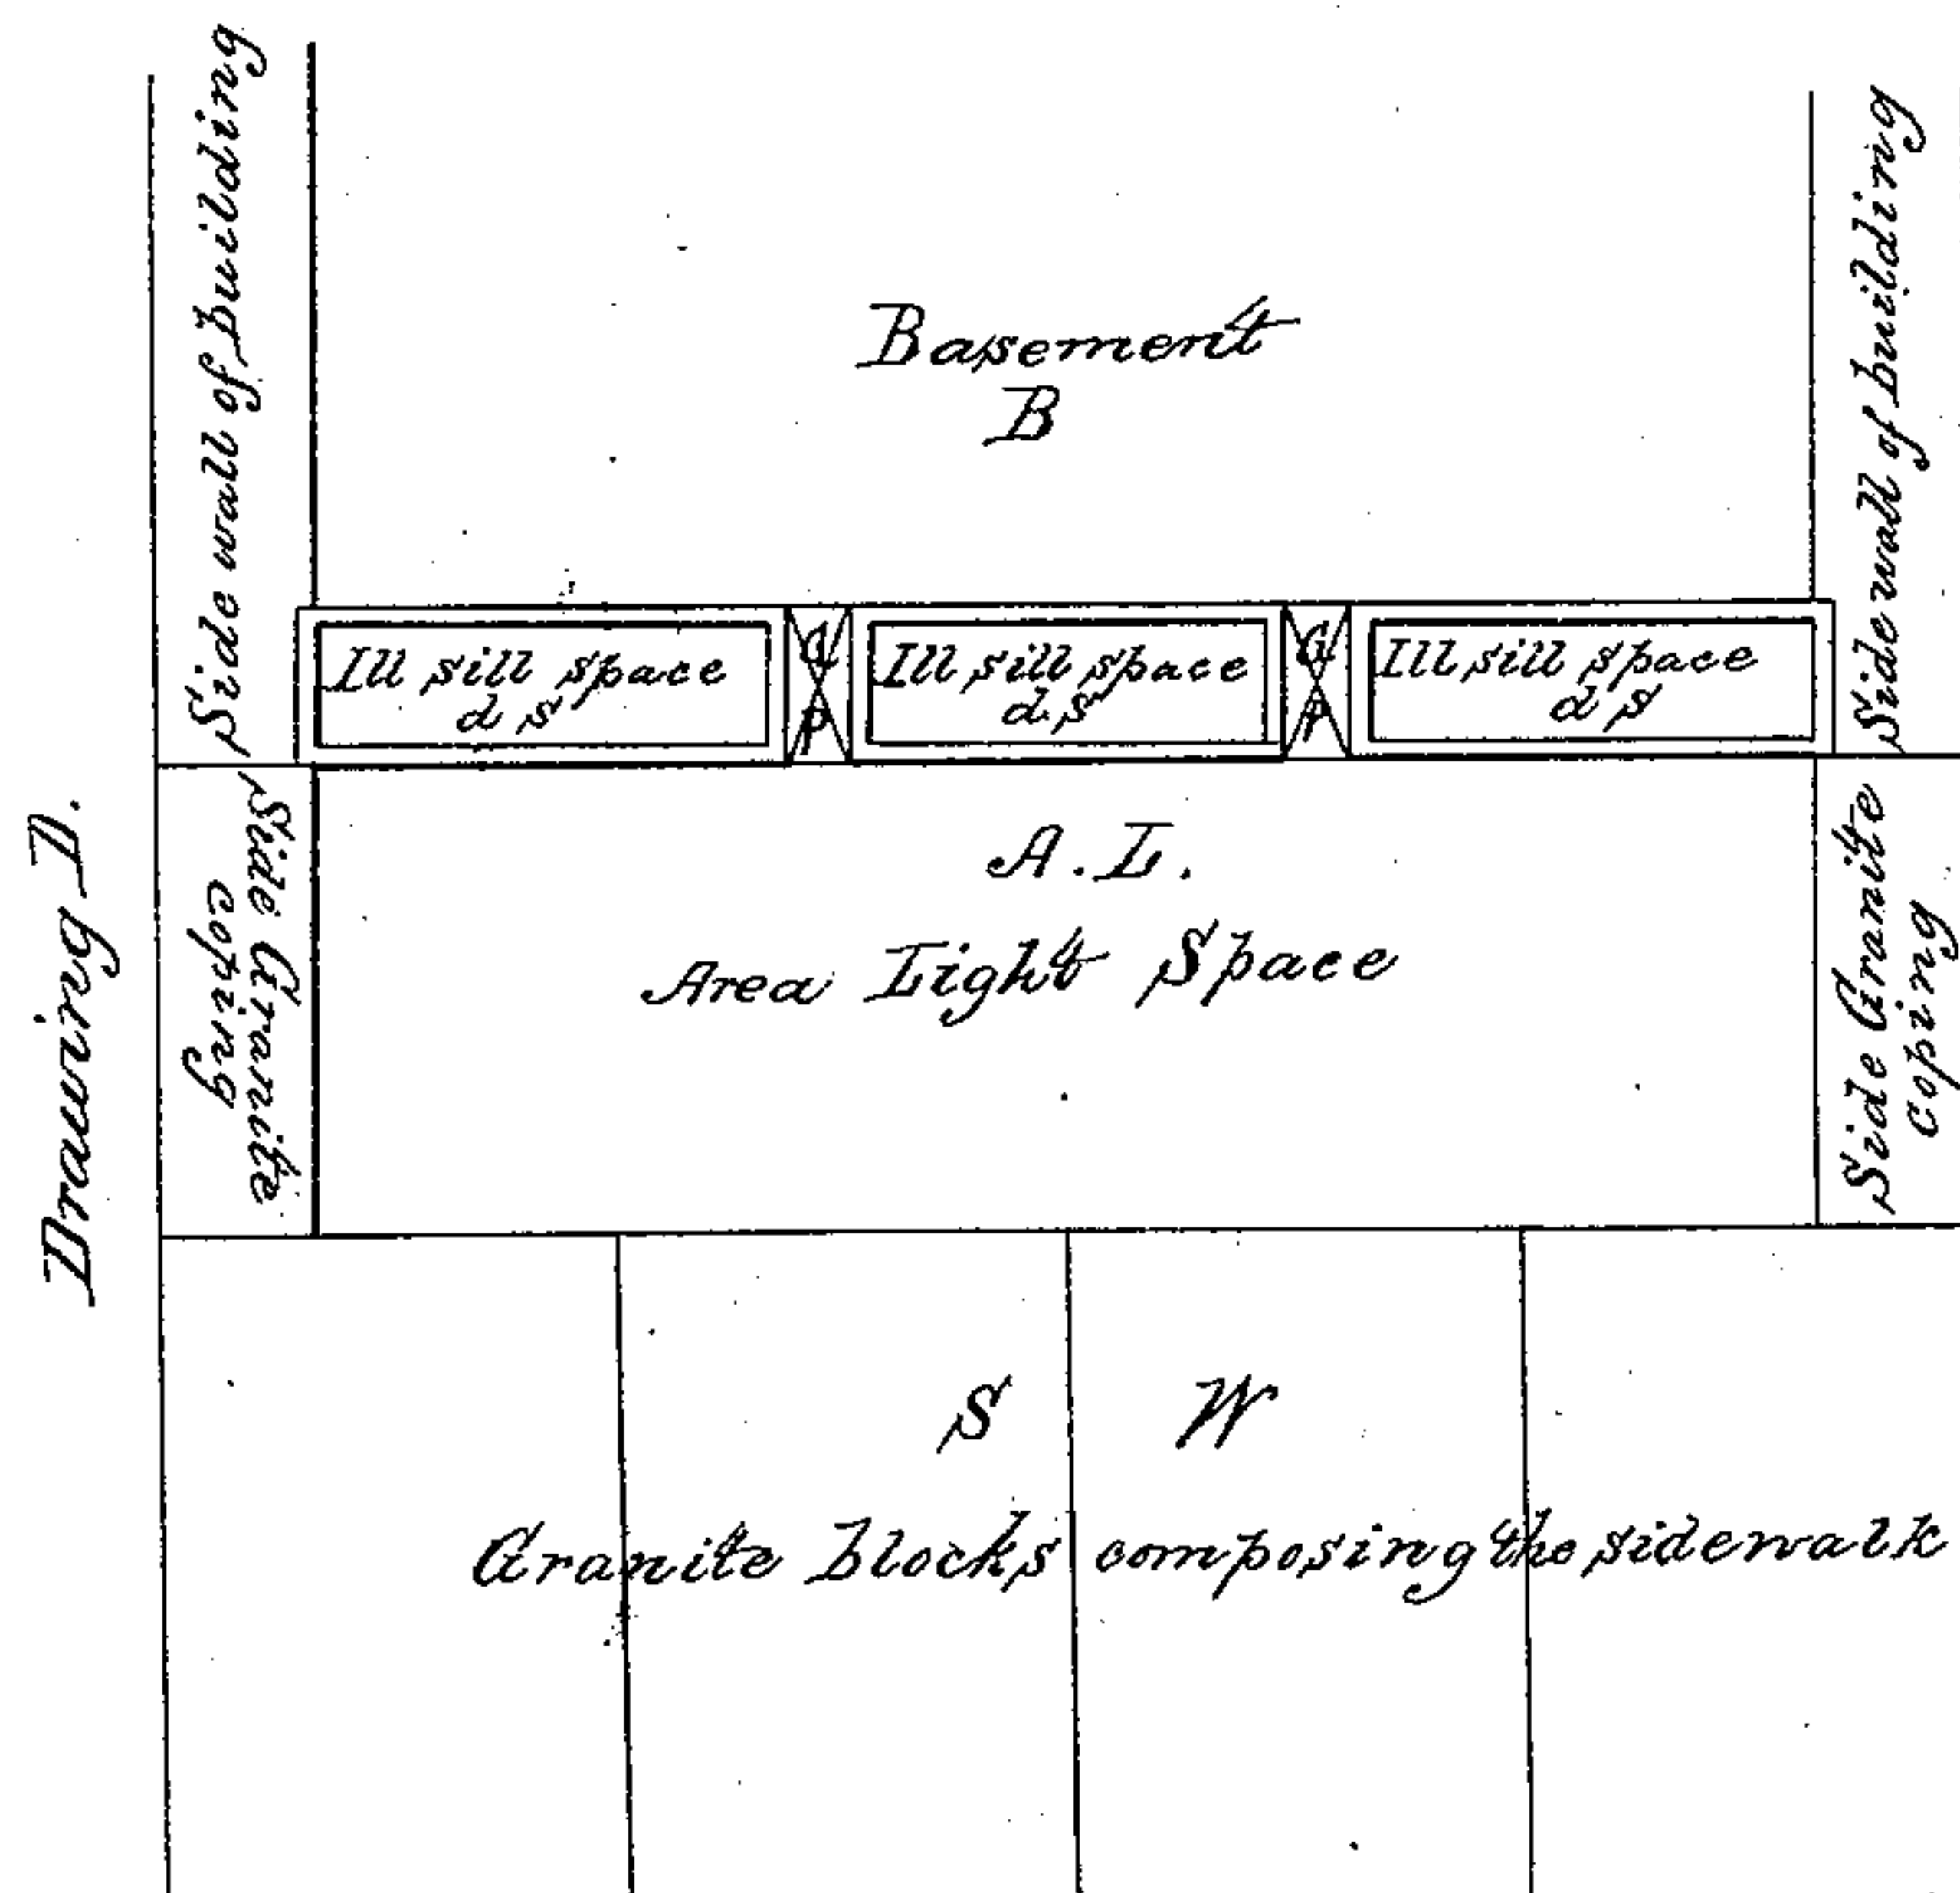 Side wall of building
Side wall of building
Basement
B
Ill sill space
d s
G
P
Ill sill space
d. s
G
P
Ill sill space
d s
Drawing D.
Side Granite
coping
A. L.
Area Light Space
Side Granite
coping
S W
Granite blocks composing the sidewalk